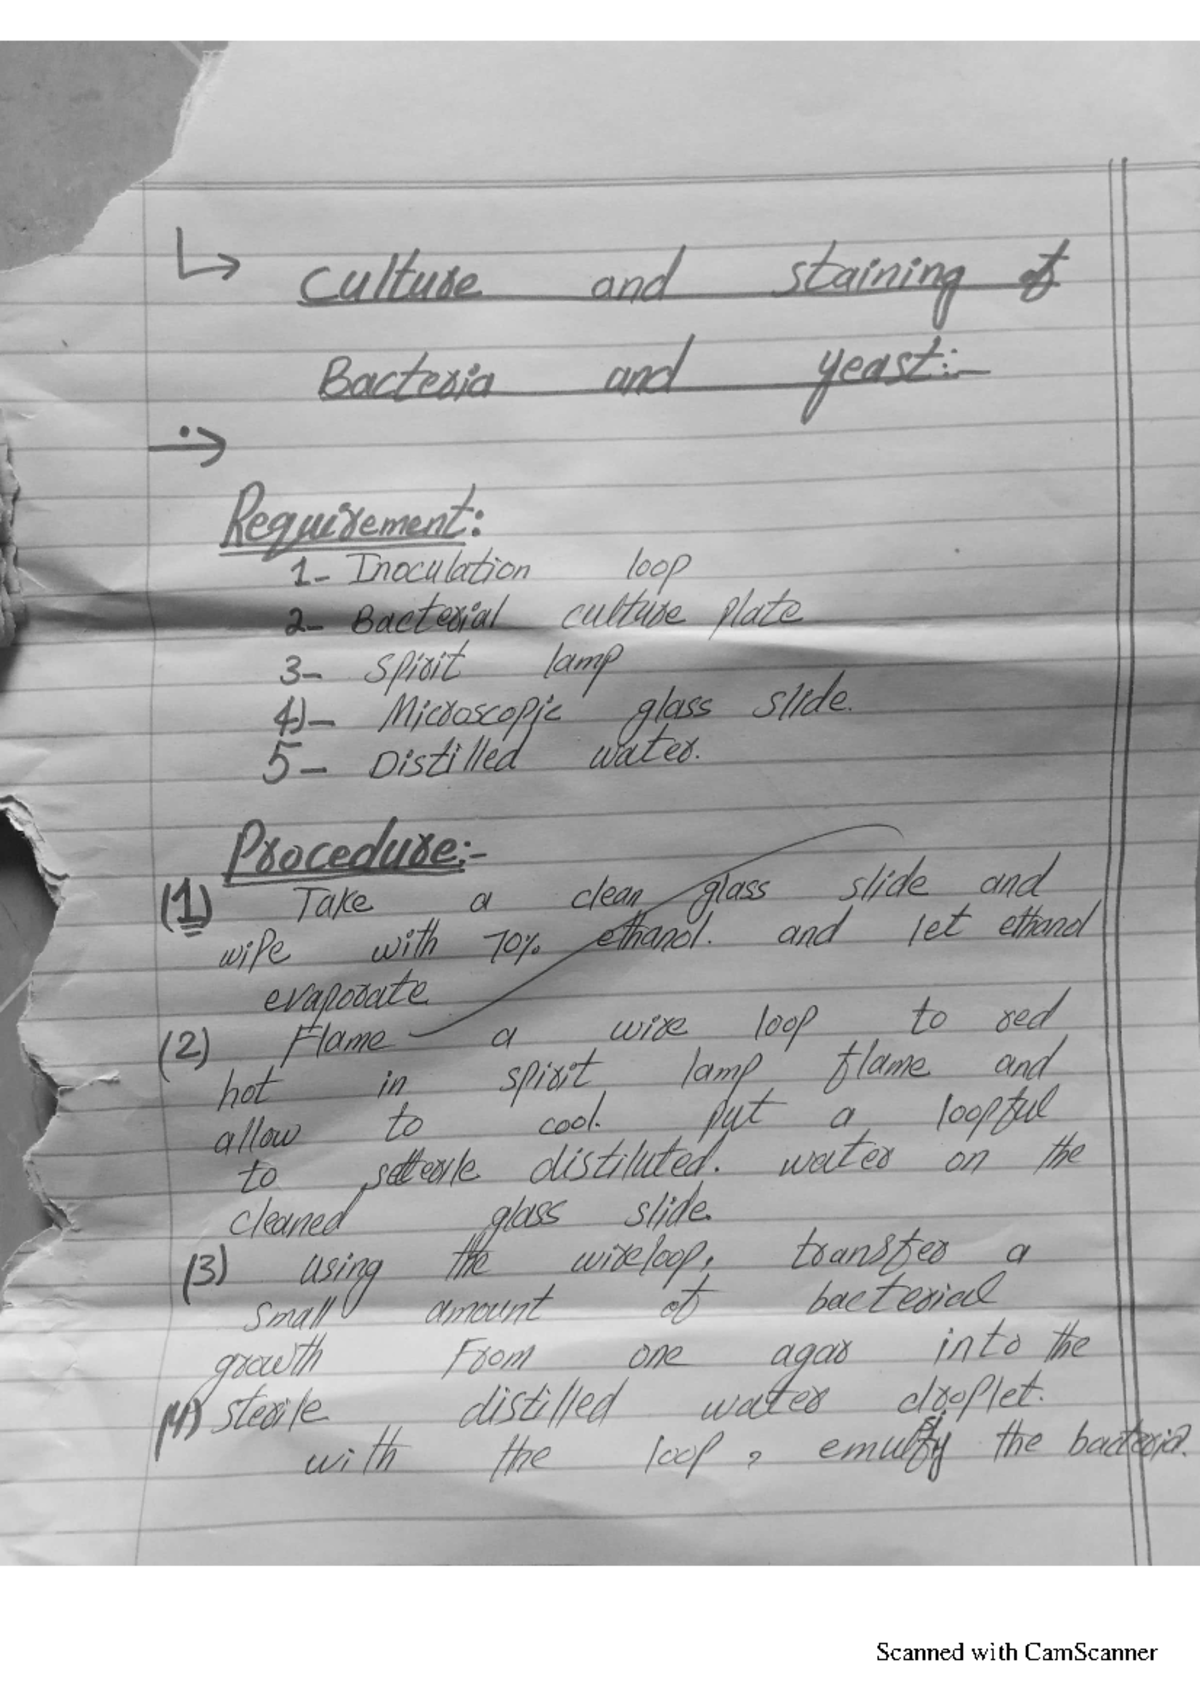 ↳ Culture and staining of
Bacteria and yeast:-
Requirement:
1- Inoculation loop
2- Bacterial culture plate
3- Spirit lamp
4)- Microscopic glass slide.
5- Distilled water.
Procedure:-
(1) Take a clean glass slide and
wipe with 70% ethanol. and let ethanol
evaporate
(2) Flame a wire loop to red
hot in spirit lamp flame and
allow to cool. Put a loopful
to sterile distiluted. water on the
cleaned glass slide.
(3) using the wireloop, transfer a
small amount of bacterial
growth From one agar into the
(4) sterile distilled water droplet.
with the loop, emulfy the bacteria.
Scanned with CamScanner